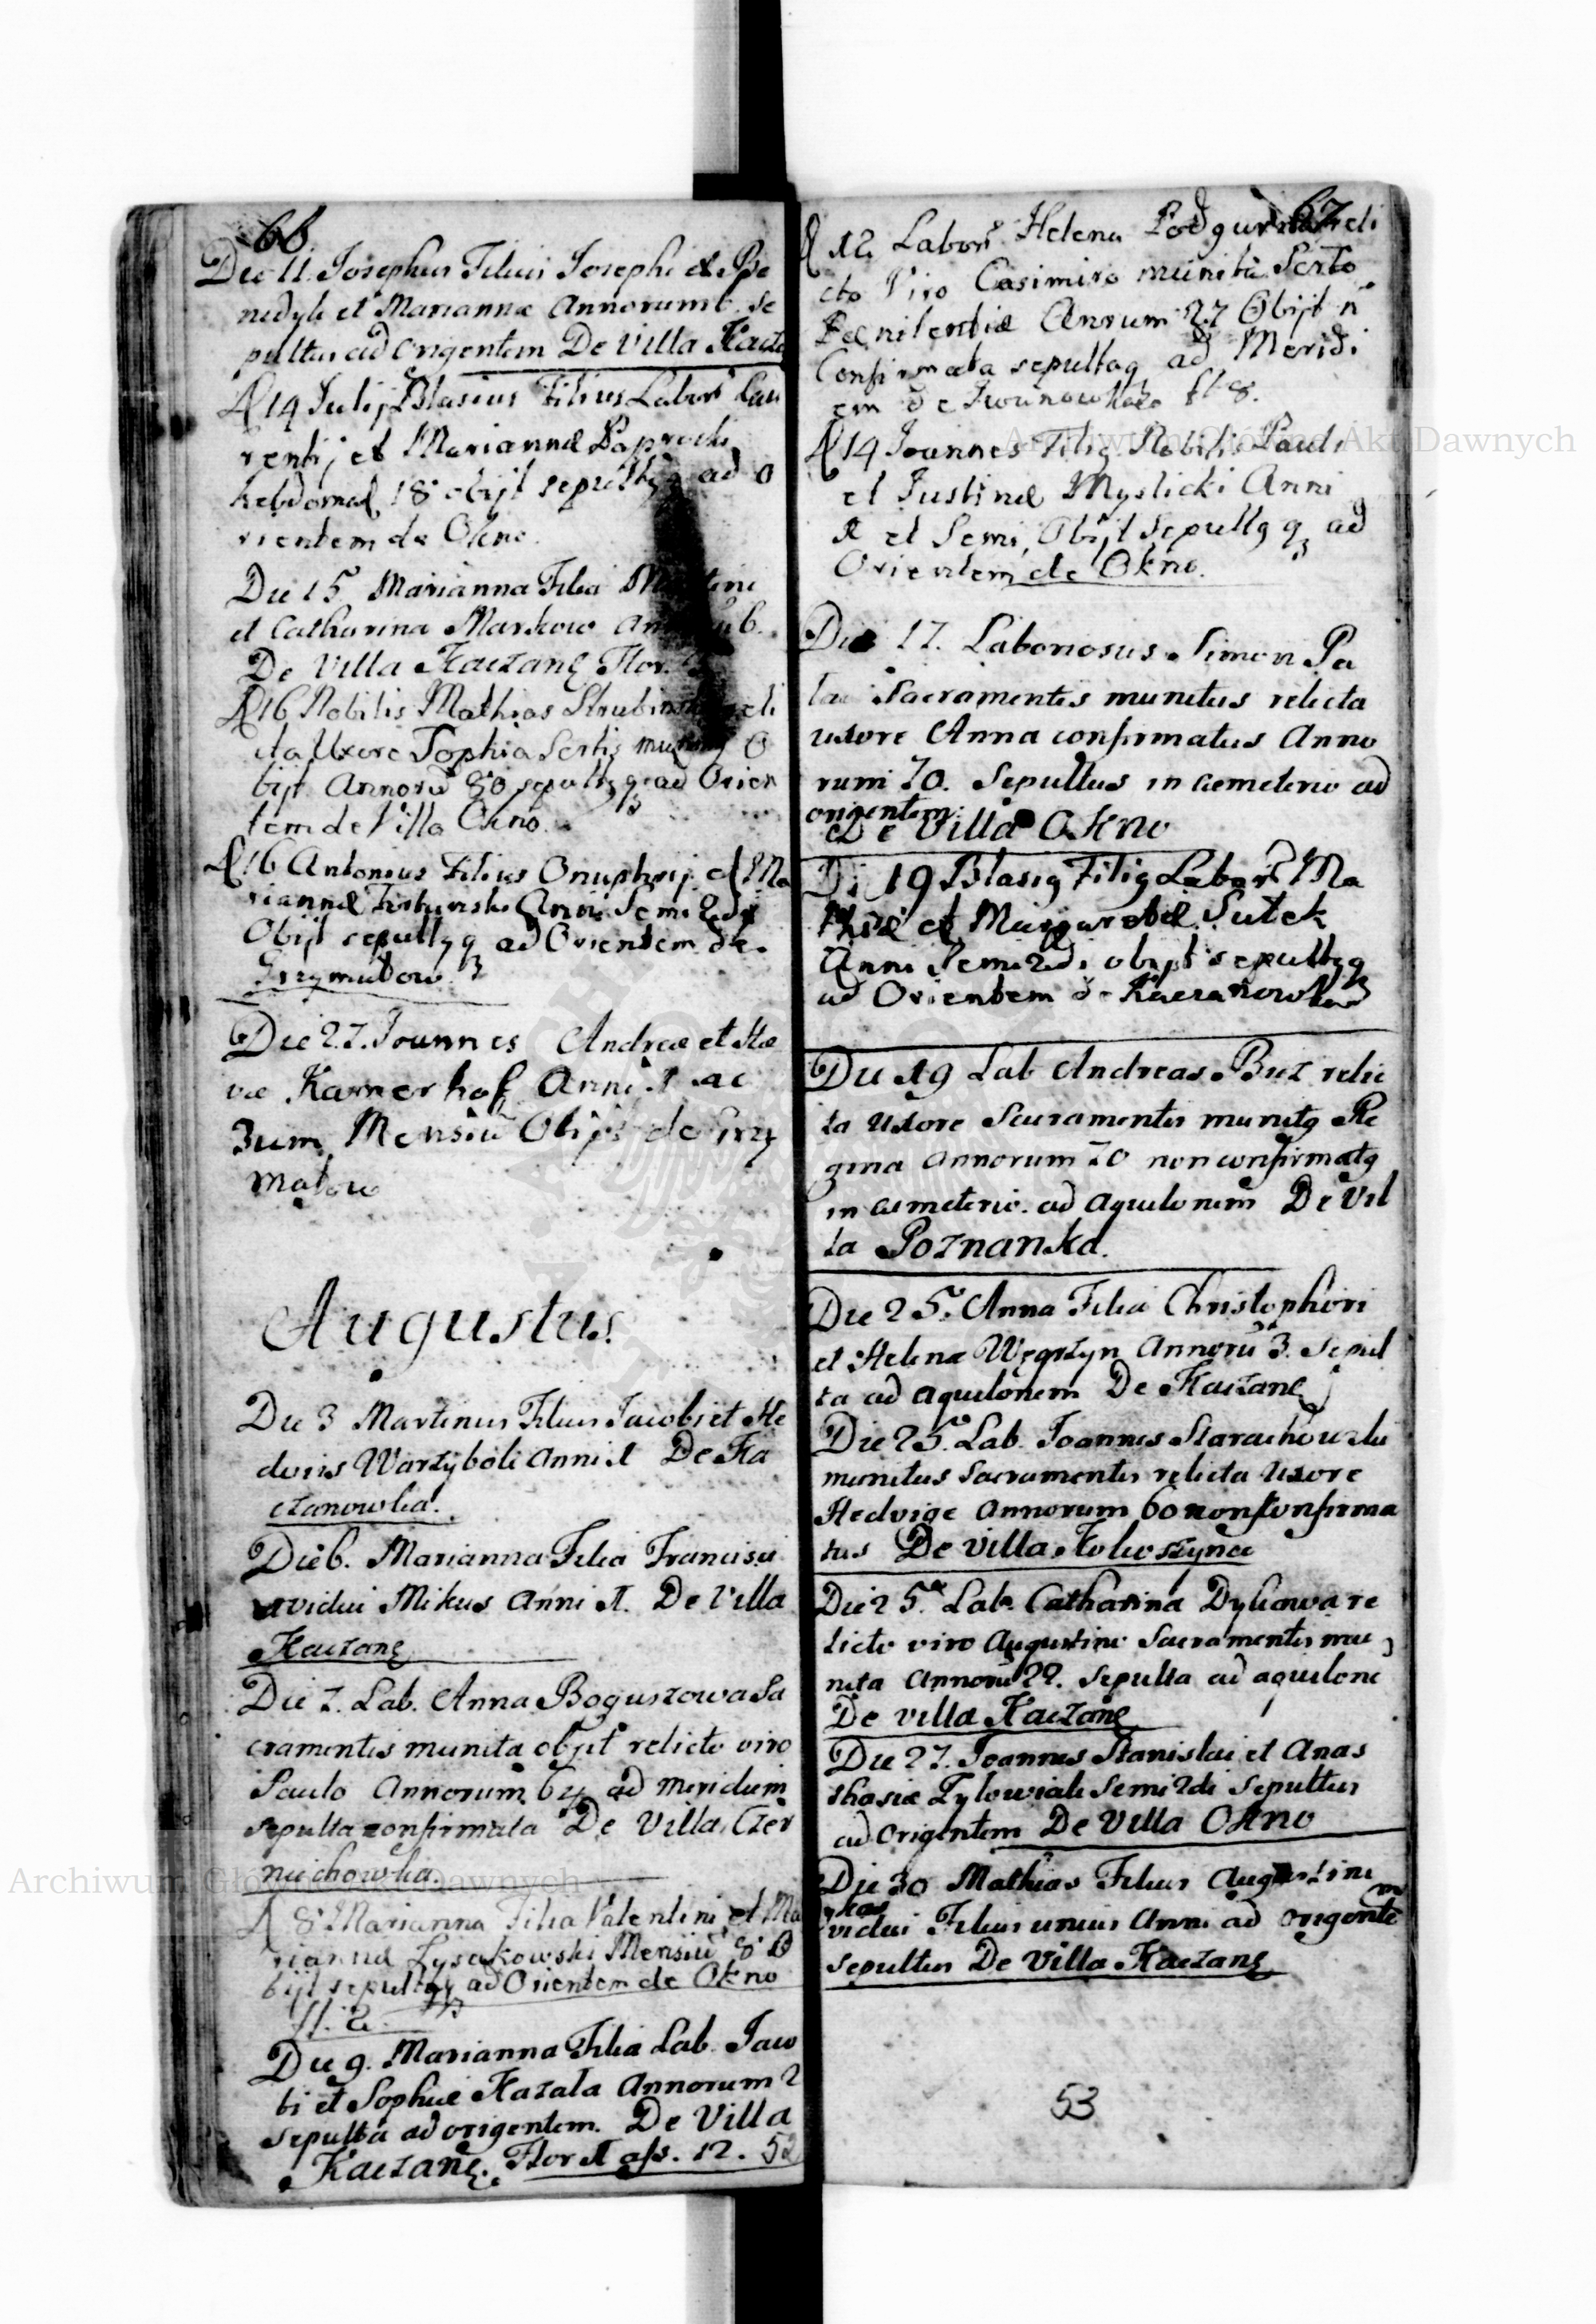 66
Die 11. Josephus Filius Josephi et Be
nedyk et Mariannæ Annorum 6. Se
pultus ad origentem De Villa Kacza
D 14 Julij Blasius Filius Labor Lau
rentij et Mariannæ Paprocki
hebdomad 18 obijt sepultg q ad O
rientem de Okno.
Die 15 Marianna Filia
et Catharina Markow 6.
De Villa Kaczanę Flor.
D 16 Nobilis Mathias Strubins reli
cta Uxore Sophia Sertis O
bijt Annorū 80 sepultg q ad Orien
tem de Villa Okno.
D 16 Antonius Filius Onuphrij et Ma
riannæ Anni Semi 2di
Obijt sepultg q ad Orientem de
Grzymałow
Die 27. Joannes Andreæ et Hæ
væ Kamerhof Anni 1 ac
3um Mensiū Obijt de Grzy
małow
Augustus.
Die 3 Martinus Filius Jacobi et He
dvigis Warzyboli Anni 1 De Ka
czanowka.
Die 6. Marianna Filia Francisci
vidui Mikus Anni 1. De Villa
Kaczanę
Die 7. Lab. Anna Boguszowa Sa
cramentis munita objit relicto viro
Paulo Annorum 64 ad meridiem
sepulta confirmata De Villa Czer
niichowka.
D 8 Marianna Filia Valentini et Ma
riannæ Lysakowski Mensiū 8 O
bijt sepultg q ad Orientem de Okno
fl. 2.
Die 9. Marianna Filia Lab. Jaco
bi et Sophiæ Kazala Annorum 2
sepulta ad origentem. De Villa
Kaczanę. Flor 1 gss. 12. 52
67
D 12 Labors Helena Podgurska reli
cto Viro Casimiro munita Scrto
Pænitentiæ Annrum 27 Obijt n
Confirmata sepultaq ad Meridi
em de Iwanowka fl 8.
D 14 Joannes Filig Nobilis Pauli
et Justinæ Myslicki Anni
1 et Semi, Obijt Sepultg q ad
Orientem de Okno.
Die 17. Laboriosus Simon Pa
lac Sacramentis munitus relicta
uxore Anna confirmatus Anno
rum 70. Sepultus in cemeterio ad
origentem.
De Villa Okno
Di 19 Blasig Filig Labors Ma
thiæ et Margarethæ Sutek
Anni Semi 2di obijt sepultg q
ad Orientem de Kaczanowka
Die 19 Lab Andreas Buz relic
ta Uxore Sacramentis munitg Re
gina Annorum 70 non confirmatg
in cæmeterio ad aquilonem De Vil
la Poznanka.
Die 25. Anna Filia Christophori
et Helenæ Węgrzyn Annorū 3. Sepul
ta ad aquilonem De Kaczanę
Die 25. Lab. Joannes Starachowski
munitus Sacramentis relicta Uxore
Hedvige Annorum 60 non confirma
tus De villa Kokoszynce
Die 25. Lab. Catharina Dykowa re
licto viro Augustino Sacramentis mu
nita Annorū 22. Sepulta ad aquilone
De villa Kaczanę
Die 27. Joannes Stanislai et Anas
thasiæ Tylowiak Semi 2di Sepultus
ad Origentem De Villa Okno
Die 30 Mathias Filius Augustini
vidui Filius unius Anni ad origente
sepultus De Villa Kaczanę
53
Archiwum Główne Akt Dawnych
Archiwum Główne Akt Dawnych